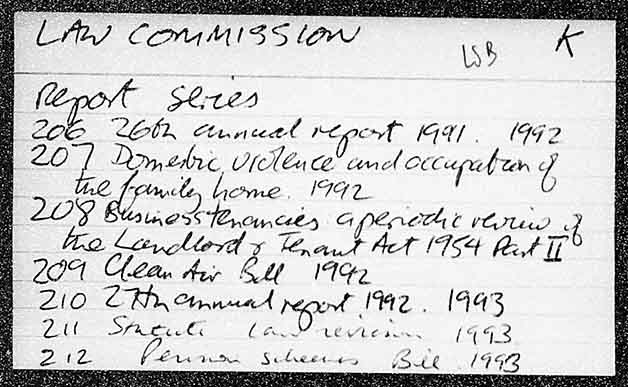 LAW COMMISSION
LSB
K
Report series
206 26th annual report 1991. 1992
207 Domestic violence and occupation of
the family home. 1992
208 Business tenancies: a periodic review of
the Landlord & Tenant Act 1954 Part II
209 Clean Air Bill 1992
210 27th annual report 1992. 1993
211 Statute law revision 1993
212 Pension schemes Bill 1993